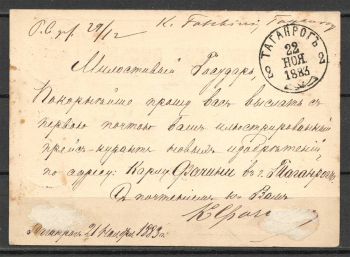 29/12
ТАГАНРОГЪ
22
НОЯ.
1883
2 2
Милостивый Государь,
Покорнѣйше прошу Васъ выслать съ
первою почтою Вашъ иллюстрированный
прейсъ-курантъ новыхъ изобрѣтеній
по адресу: въ г. Таганрогъ
Съ почтеніемъ къ Вамъ
Таганрогъ 21 Ноября 1883 г.